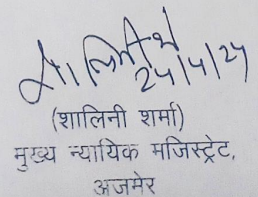 24/4/24
(शालिनी शर्मा)
मुख्य न्यायिक मजिस्ट्रेट,
अजमेर